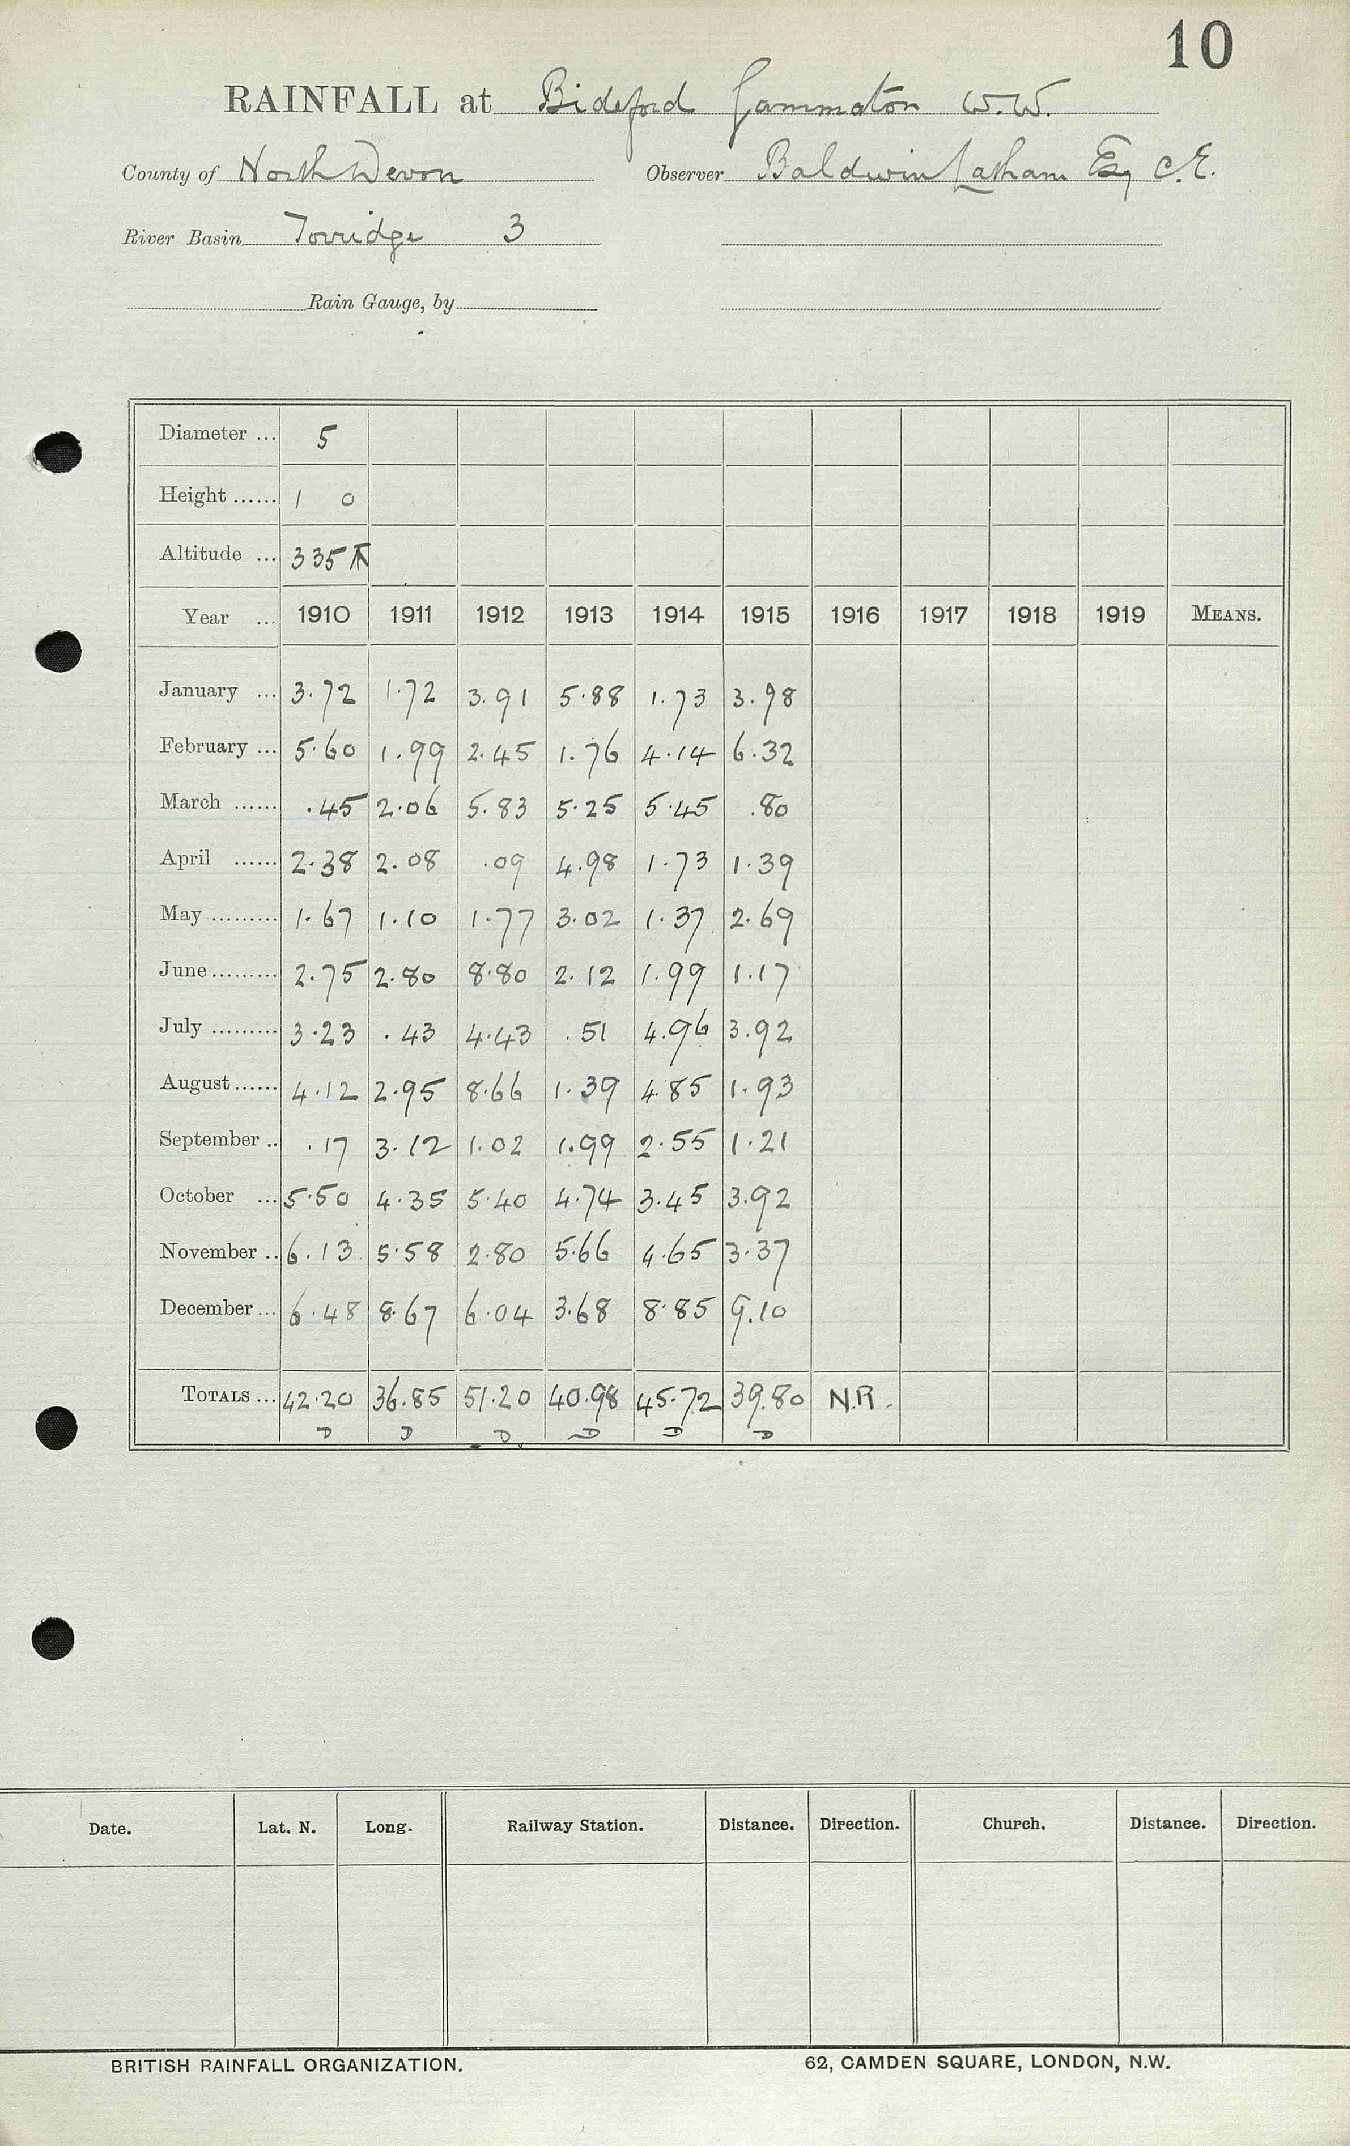 10
RAINFALL at Bideford Gammaton W.W.
County of North Devon Observer Baldwin Latham Esq C.E.
River Basin Torridge 3
Rain Gauge, by
Diameter ... 5
Height ...... 1 0
Altitude ... 335
Year ... 1910 1911 1912 1913 1914 1915 1916 1917 1918 1919 MEANS.
January ... 3.72 1.72 3.91 5.88 1.73 3.98
February ... 5.60 1.99 2.45 1.76 4.14 6.32
March ...... .45 2.06 5.83 5.25 5.45 .80
April ...... 2.38 2.08 .09 4.98 1.73 1.39
May ......... 1.67 1.10 1.77 3.02 1.37 2.69
June ......... 2.75 2.80 8.80 2.12 1.99 1.17
July ......... 3.23 .43 4.43 .51 4.96 3.92
August ...... 4.12 2.95 8.66 1.39 4.85 1.93
September .. .17 3.12 1.02 1.99 2.55 1.21
October ... 5.50 4.35 5.40 4.74 3.45 3.92
November .. 6.13 5.58 2.80 5.66 4.65 3.37
December ... 6.48 8.67 6.04 3.68 8.85 9.10
TOTALS ... 42.20 36.85 51.20 40.98 45.72 39.80 N.R.
D D D. D D D
Date. Lat. N. Long. Railway Station. Distance. Direction. Church. Distance. Direction.
BRITISH RAINFALL ORGANIZATION. 62, CAMDEN SQUARE, LONDON, N.W.